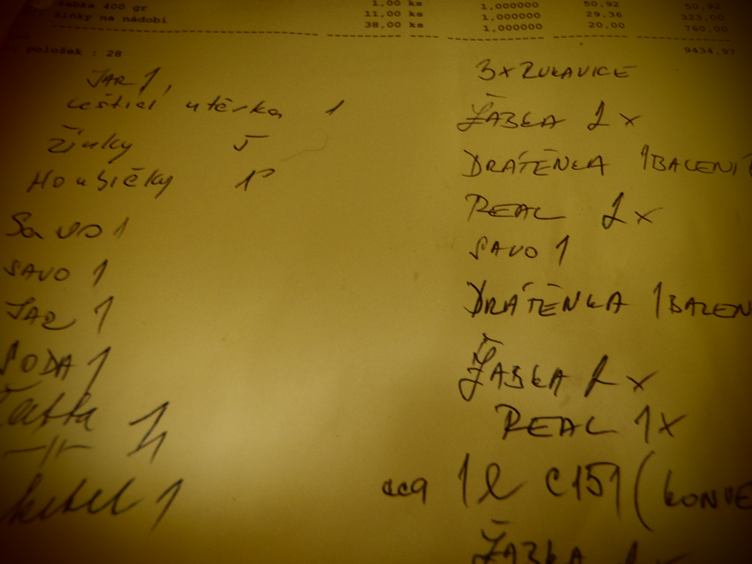 žabka 400 gr 1,00 ks 1,000000 50,92 50,92
žínky na nádobí 11,00 ks 1,000000 29.36 323,00
38,00 ks 1,000000 20,00 760,00
položek : 28 9434,97
JAR 1,
Leštící utěrka 1
Žinky 5
Houbičky
Savo 1
SAVO 1
JAR 1
SODA 1
kebel 1
3x RUKAVICE
ŽABKA 2x
DRÁTĚNKA 1BALENÍ
REAL 2x
SAVO 1
DRÁTĚNKA 1BALEN
ŽABKA 2x
REAL 1x
cca 1l C151 (KONVE
ŽABKA